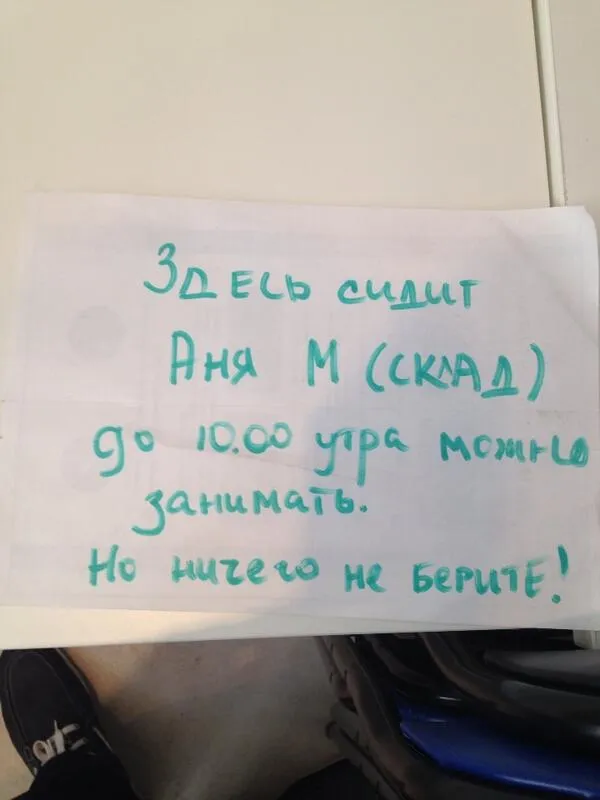 Здесь сидит
Аня М (склад)
до 10.00 утра можно
занимать.
Но ничего не берите!